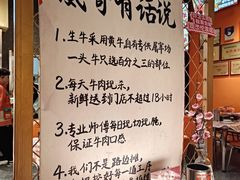 哥啃话说
1. 生牛采用黄牛自有专供屠宰场
一头牛只选百分之三的部位
2. 每天牛肉现示,
新鲜送到门店不超过18小时
3. 专业师傅每日现切现腌,
保证牛肉口感
4. 我们不是路边摊,